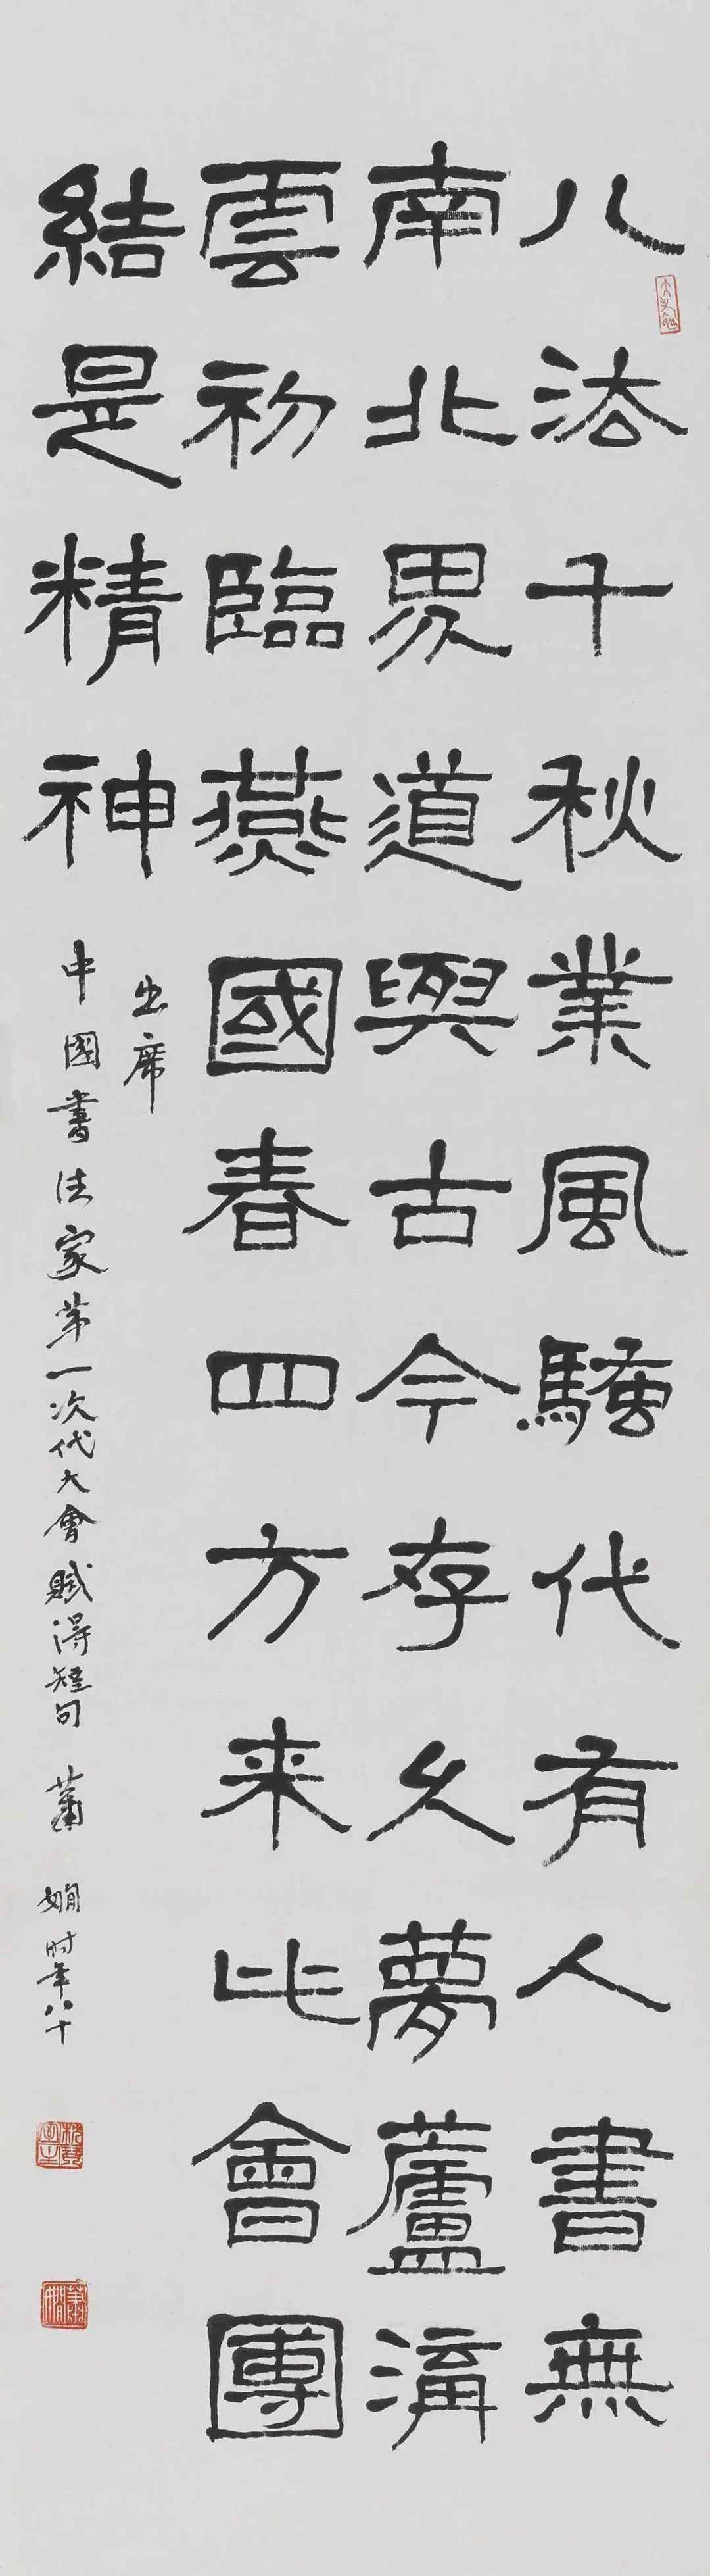 八法千秋業風騷代有人書無
南北界道與古今存久夢蘆溝
雲初臨燕國春四方来此會團
結是精神
出席
中國書法家第一次代大會賦得短句 蕭嫻时年八十
枕琴室主
蕭嫻